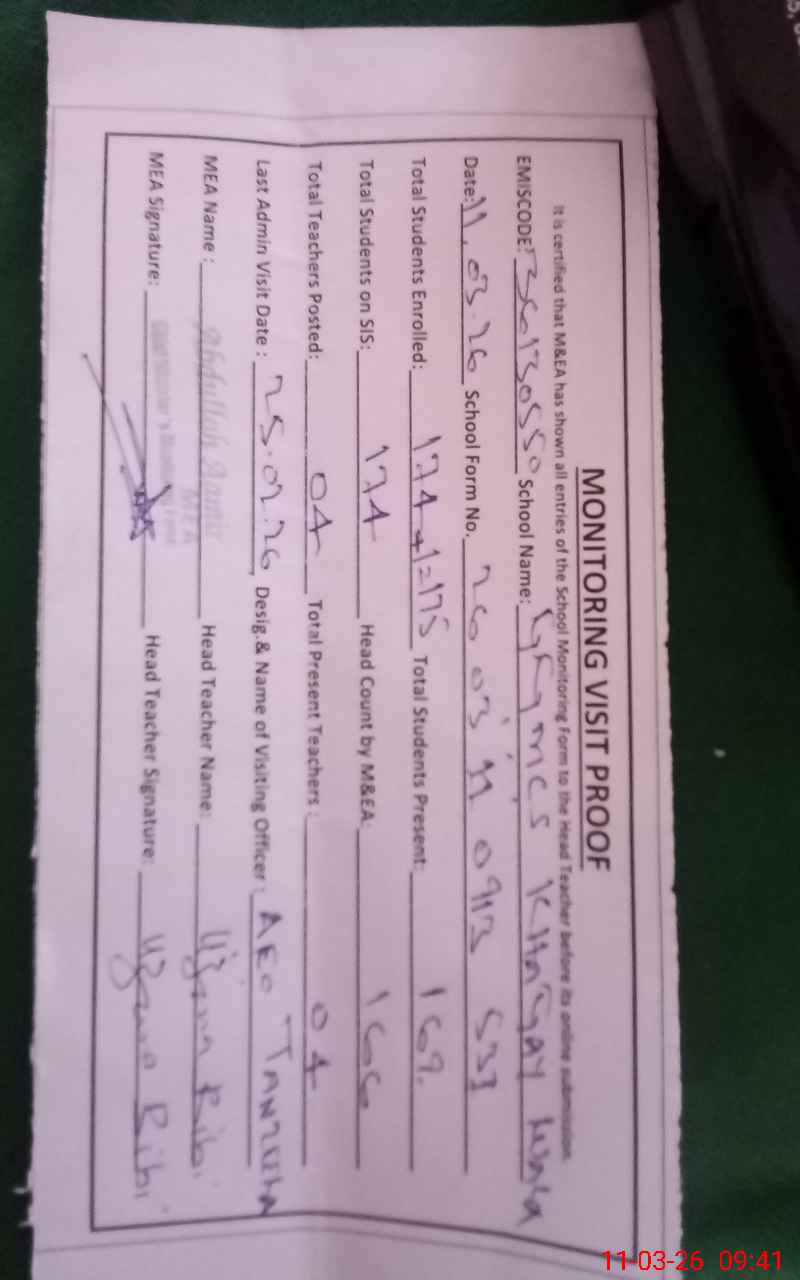 MONITORING VISIT PROOF
It is certified that M&EA has shown all entries of the School Monitoring Form to the Head Teacher before its online submission.
EMISCODE: 36130550 School Name: KHANGAY Wala
Date: 11.03.26 School Form No. 26 03 11 0913 533
Total Students Enrolled: 174+1=175 Total Students Present: 169.
Total Students on SIS: 174 Head Count by M&EA: 166
Total Teachers Posted: 04 Total Present Teachers : 04
Last Admin Visit Date : 25.02.26 Desig.& Name of Visiting Officer : AEO TANZEELA
MEA Name : Abdullah Aamir Head Teacher Name: Bibi
MEA
MEA Signature: Head Teacher Signature: Bibi
11-03-26 09:41